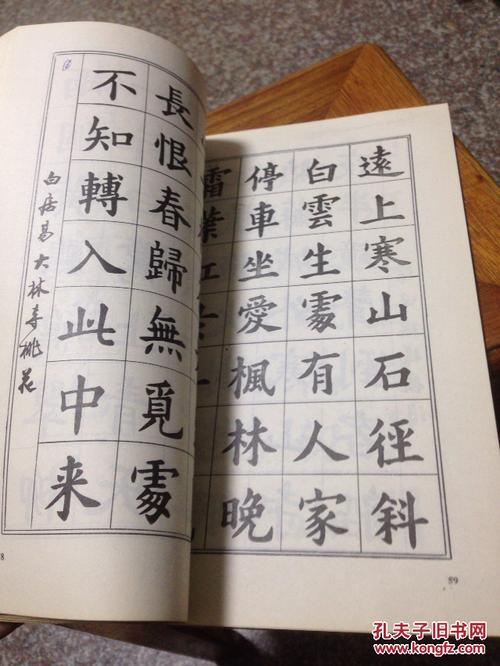 長恨春歸無覓處
不知轉入此中来
白居易大林寺桃花
遠上寒山石徑斜
白雲生處有人家
停車坐愛楓林晚
霜葉
89
孔夫子旧书网
www.kongfz.com